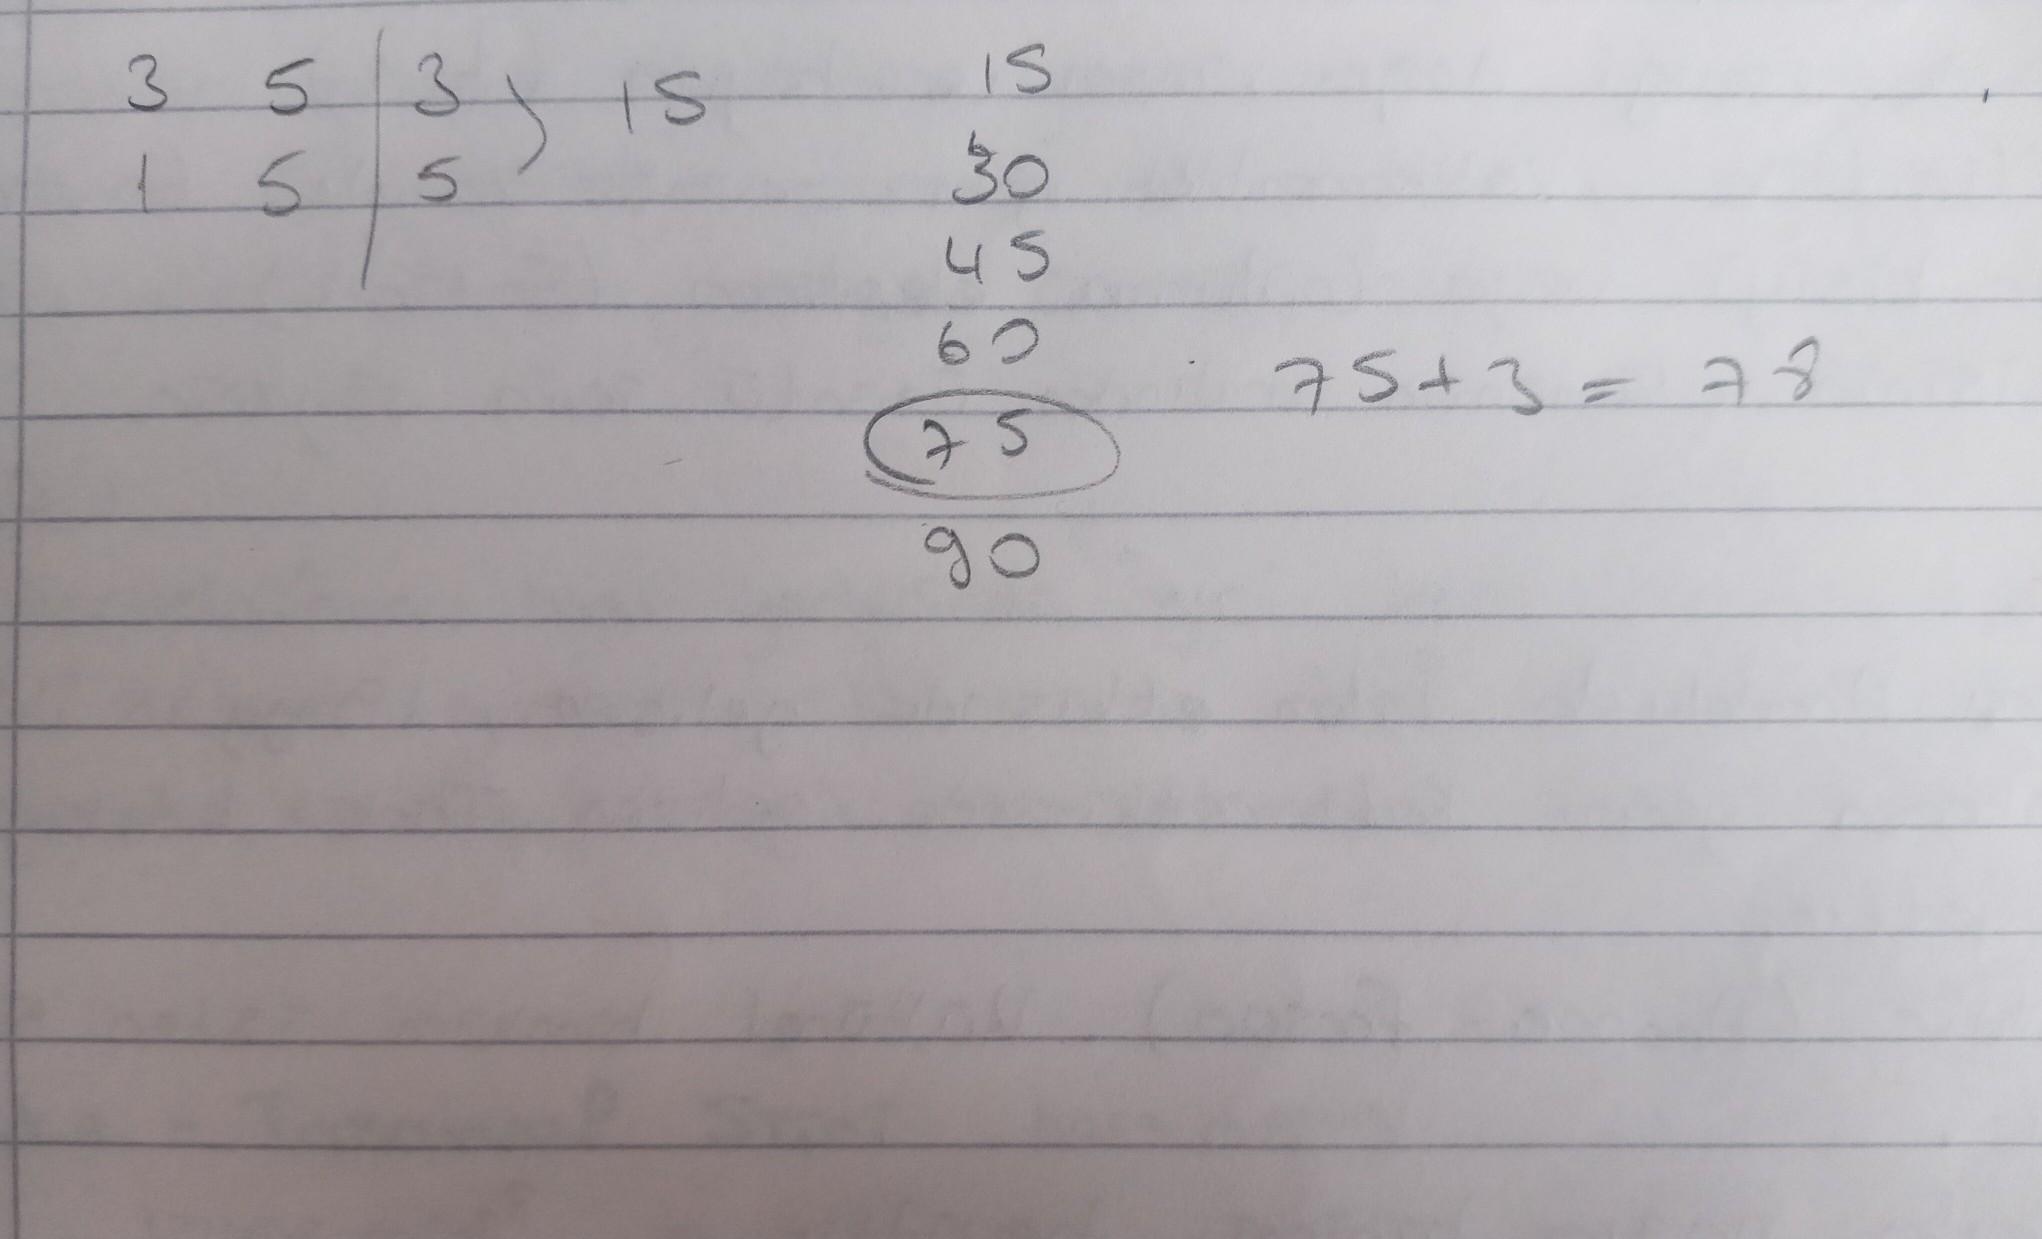 3 5 | 3 ) 15
1 5 | 5
15
30
45
60
75
90
75 + 3 = 78